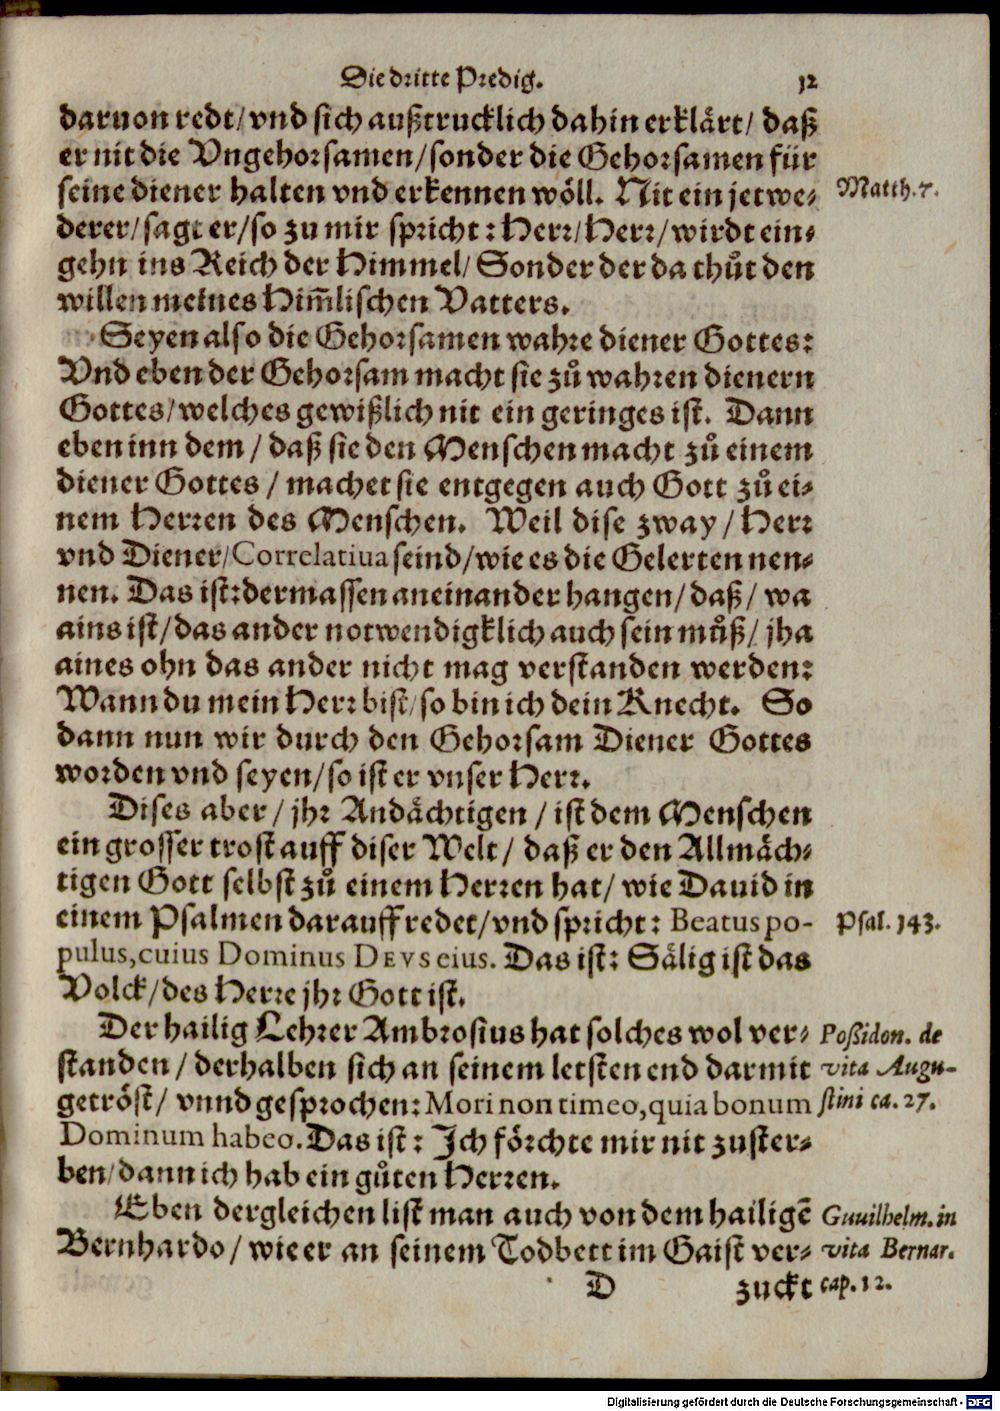 Die dritte Predig. 12
daruon redt/ vnd sich außtrucklich dahin erklärt/ daß
er nit die Vngehorsamen/ sonder die Gehorsamen für
seine diener halten vnd erkennen wöll. Nit ein jetwe- Matth. 7.
derer/ sagt er/ so zu mir spricht: Herr/ Herr/ wirdt ein-
gehn ins Reich der Himmel/ Sonder der da thůt den
willen meines Him̃lischen Vatters.
Seyen also die Gehorsamen wahre diener Gottes:
Vnd eben der Gehorsam macht sie zů wahren dienern
Gottes/ welches gewißlich nit ein geringes ist. Dann
eben inn dem/ daß sie den Menschen macht zů einem
diener Gottes/ machet sie entgegen auch Gott zů ei-
nem Herren des Menschen. Weil dise zway/ Herr
vnd Diener/ Correlatiua seind/ wie es die Gelerten nen-
nen. Das ist: dermassen aneinander hangen/ daß/ wa
ains ist/ das ander notwendigklich auch sein můß/ jha
aines ohn das ander nicht mag verstanden werden:
Wann du mein Herr bist/ so bin ich dein Knecht. So
dann nun wir durch den Gehorsam Diener Gottes
worden vnd seyen/ so ist er vnser Herr.
Dises aber/ jhr Andächtigen/ ist dem Menschen
ein grosser trost auff diser Welt/ daß er den Allmäch-
tigen Gott selbst zů einem Herren hat/ wie Dauid in
einem Psalmen darauff redet/ vnd spricht: Beatus po- Psal. 143.
pulus, cuius Dominus DEVS eius. Das ist: Sälig ist das
Volck/ des Herre jhr Gott ist.
Der hailig Lehrer Ambrosius hat solches wol ver- Poßidon. de
standen/ derhalben sich an seinem letsten end darmit vita Augu-
getröst/ vnnd gesprochen: Mori non timeo, quia bonum stini ca. 27.
Dominum habeo. Das ist: Ich förchte mir nit zuster-
ben/ dann ich hab ein gůten Herren.
Eben dergleichen list man auch von dem hailigẽ Guuilhelm. in
Bernhardo/ wie er an seinem Todbett im Gaist ver- vita Bernar.
D zuckt cap. 12.
Digitalisierung gefördert durch die Deutsche Forschungsgemeinschaft - DFG